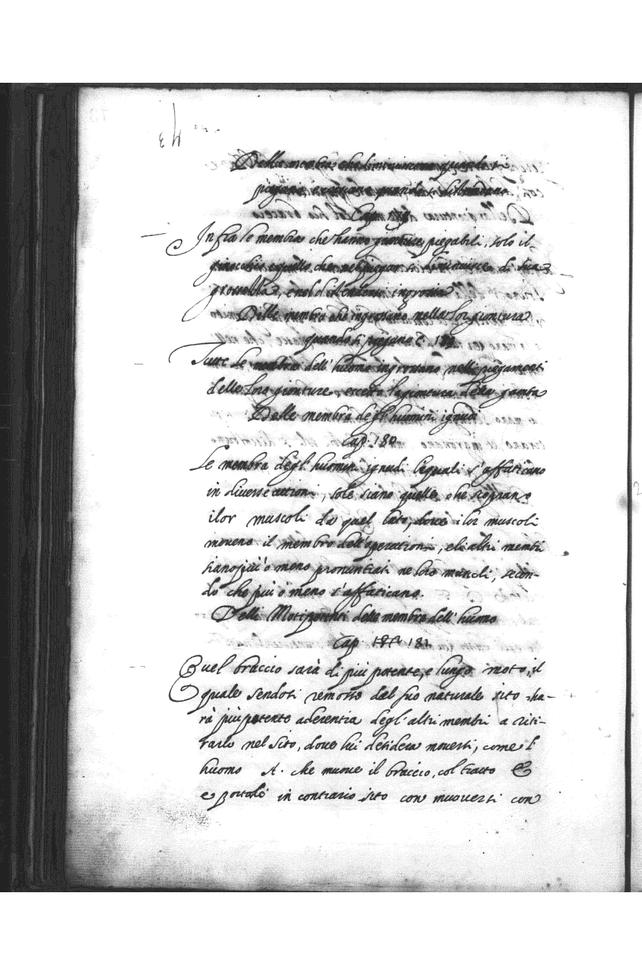 43
Delle membra che diminuiscono quando si
piegano, e crescono quando si distendono
Cap. 178
Infra le membra che hanno gionture piegabili, solo il
ginocchio è quello, che nel piegar si diminuisce di sua
grossezza, e nel distendersi ingrossa
Delle membra che ingrossano nella lor giontura
quando si piegano C. 179
Tutte le membra dell' huomo ingrossano nelli piegamenti
delle loro gionture, eccetto la giontura della gamba
Delle membra degl' huomini ignudi
Cap. 180
Le membra degl' huomini ignudi li quali s' affaticano
in diverse actioni, sole siano quelle, che scoprano
i lor muscoli da quel lato, dove i lor muscoli
moveno il membro dell' operationi, e li altri membri
siano più o meno pronuntiati ne loro muscoli, secon-
do che più o meno s' affaticano.
Delli Moti potenti delle membra dell' huomo
Cap. 181
Quel braccio sarà di più potente, e lungo moto, il
quale sendosi remosso dal suo naturale sito ha-
rà più potente aderentia degl' altri membri a riti-
rarlo nel sito, dove lui desidera moversi, come l'
huomo A. che muove il braccio, col tratto E
e portalo in contrario sito con muoversi con